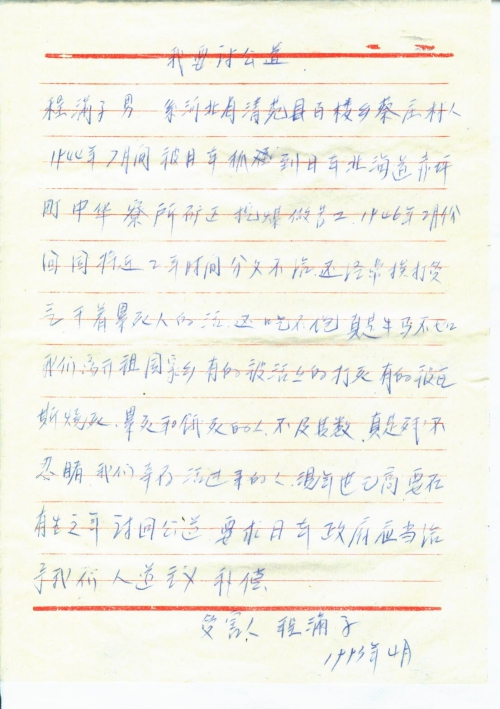 我要讨公道
程满子 男 系河北省清苑县百楼乡蔡庄村人
1944年7月间被日本抓到日本北海道赤坪
町中华寮所矿区挖煤做苦工, 1946年2月份
回国 将近2年时间分文不给, 还经常挨打受
气, 干着累死人的活, 还吃不饱 真是牛马不如
我们离开祖国家乡 有的被活活的打死 有的被瓦
斯烧死, 累死和饿死的人, 不及其数, 真是残不
忍睹, 我们幸存活过来的人, 现年也已高, 要在
有生之年 讨回公道 要求日本政府应当给
予我们人道主义 补偿.
受害人 程满子
1995年4月